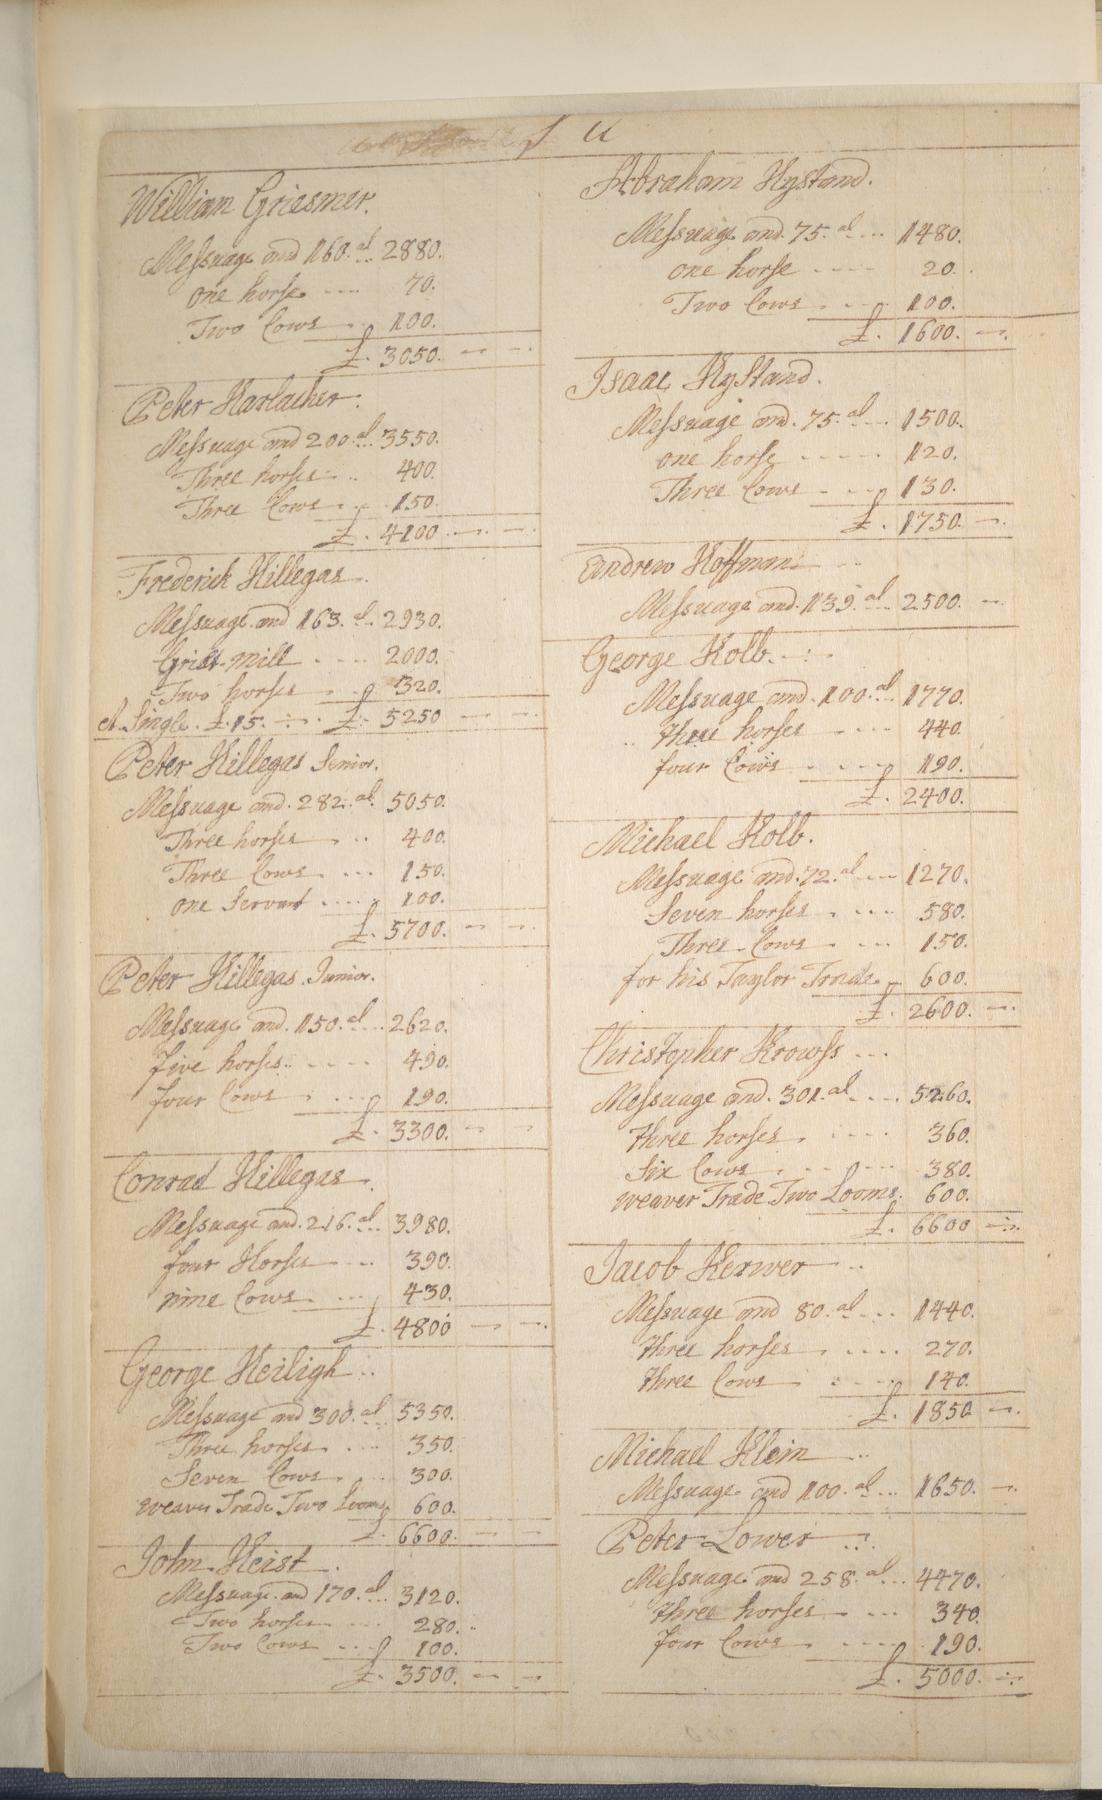 William Griesmer.
Messuage and 160. al ... 2880.
one horse .... 70.
Two Cows .. 100.
£. 3050. — —.
Peter Harlacher.
Messuage and 200. al ... 3550.
Three horses .. 400.
Three Cows .. 150.
£. 4100 — —.
Frederick Hillegas.
Messuage and 163. al .. 2930.
Grist Mill .... 2000.
Two horses .. 320.
A Single. £.15. £. 5250 — —
Peter Hillegas Senior.
Messuage and. 282. al. 5050.
Three horses .. 400.
Three Cows .... 150.
one Servant .... 100.
£. 5700. — —.
Peter Hillegas. Junior.
Messuage and. 150. al ... 2620.
five horses .. .... 490.
four Cows .... 190.
£. 3300. — —
Conrad Hillegas.
Messuage and. 216. al ... 3980.
four Horses ... 390.
nine Cows .... 430.
£. 4800 — —.
George Heiligh ..
Messuage and 300. al 5350.
Three horses .... 350.
Seven Cows .... 300.
Weaver Trade Two Looms 600.
£. 6600. — —
John Heist .
Messuage and 170. al ... 3120.
Two horses .... 280.
Two Cows .... 100.
£. 3500. — —
Abraham Hystand.
Messuage and. 75. al ... 1480.
one horse .... 20.
Two Cows .... 100.
£. 1600. —.
Isaac Hystand.
Messuage and. 75. al .... 1500.
one horse ..... 120.
Three Cows .... 130.
£. 1750. —.
Andrew Hoffman ..
Messuage and. 139. al ... 2500. —
George Kolb.
Messuage and. 100. al ... 1770.
three horses .... 440.
four Cows .... 190.
£. 2400.
Michael Kolb.
Messuage and. 72. al .... 1270.
Seven horses .... 580.
Three Cows .... 150.
for his Taylor Trade. 600.
£. 2600. —.
Christopher Krowss ...
Messuage and. 301. al .... 5260.
three horses .... 360.
Six Cows .... 380.
Weaver Trade Two Looms. 600.
£. 6600
Jacob Kerwer ..
Messuage and 80. al ... 1440.
three horses .... 270.
three Cows .... 140.
£. 1850 —.
Michael Klein ..
Messuage and 100. al ... 1650. —.
Peter Lower
Messuage and 258. al ... 4470.
three horses .... 340.
four Cows .... 190.
£. 5000.